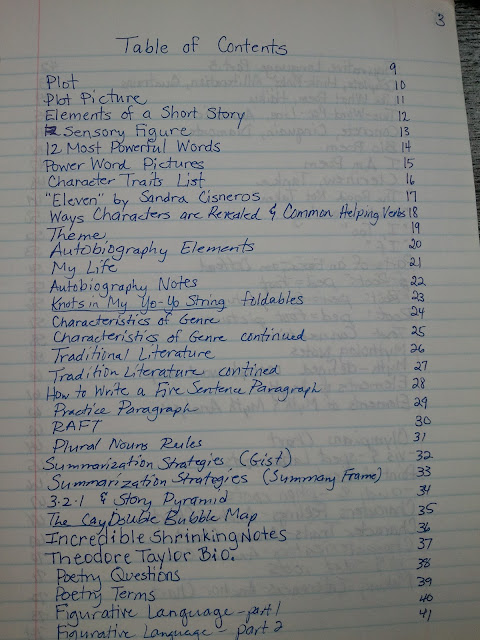 3
Table of Contents
9
Plot 10
Plot Picture 11
Elements of a Short Story 12
Sensory Figure 13
12 Most Powerful Words 14
Power Word Pictures 15
Character Traits List 16
"Eleven" by Sandra Cisneros 17
Ways Characters are Revealed & Common Helping Verbs 18
Theme 19
Autobiography Elements 20
My Life 21
Autobiography Notes 22
Knots in My Yo-Yo String foldables 23
Characteristics of Genre 24
Characteristics of Genre continued 25
Traditional Literature 26
Tradition Literature contined 27
How to Write a Five Sentence Paragraph 28
Practice Paragraph 29
RAFT 30
Plural Nouns Rules 31
Summarization Strategies (Gist) 32
Summarization Strategies (Summary Frame) 33
3-2-1 & Story Pyramid 34
The Cay Double Bubble Map 35
Incredible Shrinking Notes 36
Theodore Taylor Bio. 37
Poetry Questions 38
Poetry Terms 39
Figurative Language - part 1 40
Figurative Language - part 2 41